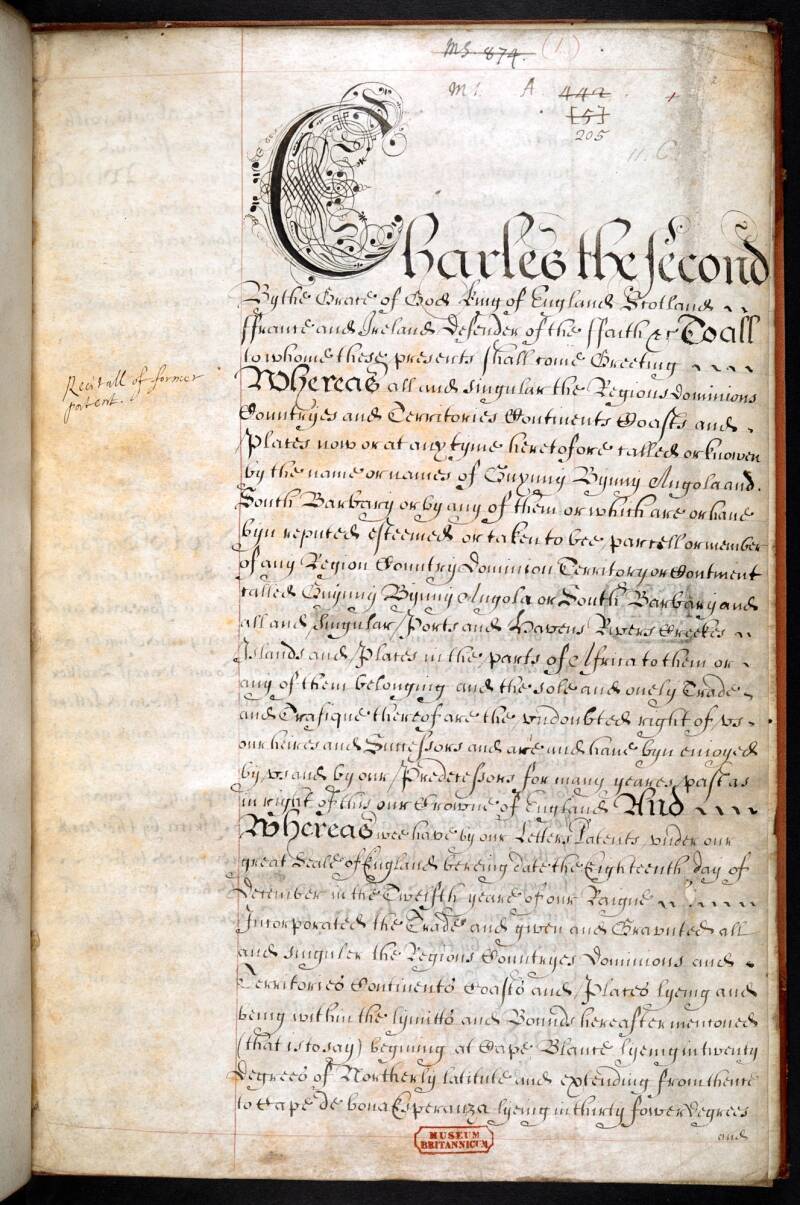 MS. 874. (1.)
MS. A. 442
[5]
205
11. C.
Charles the second
By the Grace of God King of England Scotland
ffrance and Ireland Defender of the ffaith &c To all
to whome these presents shall come Greeting
Whereas all and singular the Regions dominions
Countryes and Territories Continents Coasts and
Places now or at any tyme heretofore called or knowen
by the name or names of Guynny Bynny Angola and
South Barbary or by any of them or which are or have
byn reputed esteemed or taken to bee parcell or member
of any Region Country Dominion Territory or Continent
called Guynny Bynny Angola or South Barbary and
all and singular Ports and Havens Rivers Creekes
Islands and Places in the parts of Africa to them or
any of them belonging and the sole and onely Trade
and Trafique thereof are the undoubted right of us
our heires and Successors and are and have byn enioyed
by us and by our Predecessors for many yeares past as
in right of this our Crowne of England And
Recitall of former
patent.
Whereas wee have by our Letters Patents vnder our
great Seale of England bereing date the Eighteenth day of
December in the Twelfth yeare of our Raigne
Incorporated the Trade and given and Graunted all
and singuler the Regions Countryes Dominions and
Territories Continents Coasts and Places lyeing and
being within the lymitts and Bounds hereafter mentoned
(that is to say) begining at Cape Blance lyeing in twenty
degrees of Northerly latitute and extending from thence
to Cape de bona Esperanza lyeing in thirty fower degrees
and
MUSEUM
BRITANNICUM